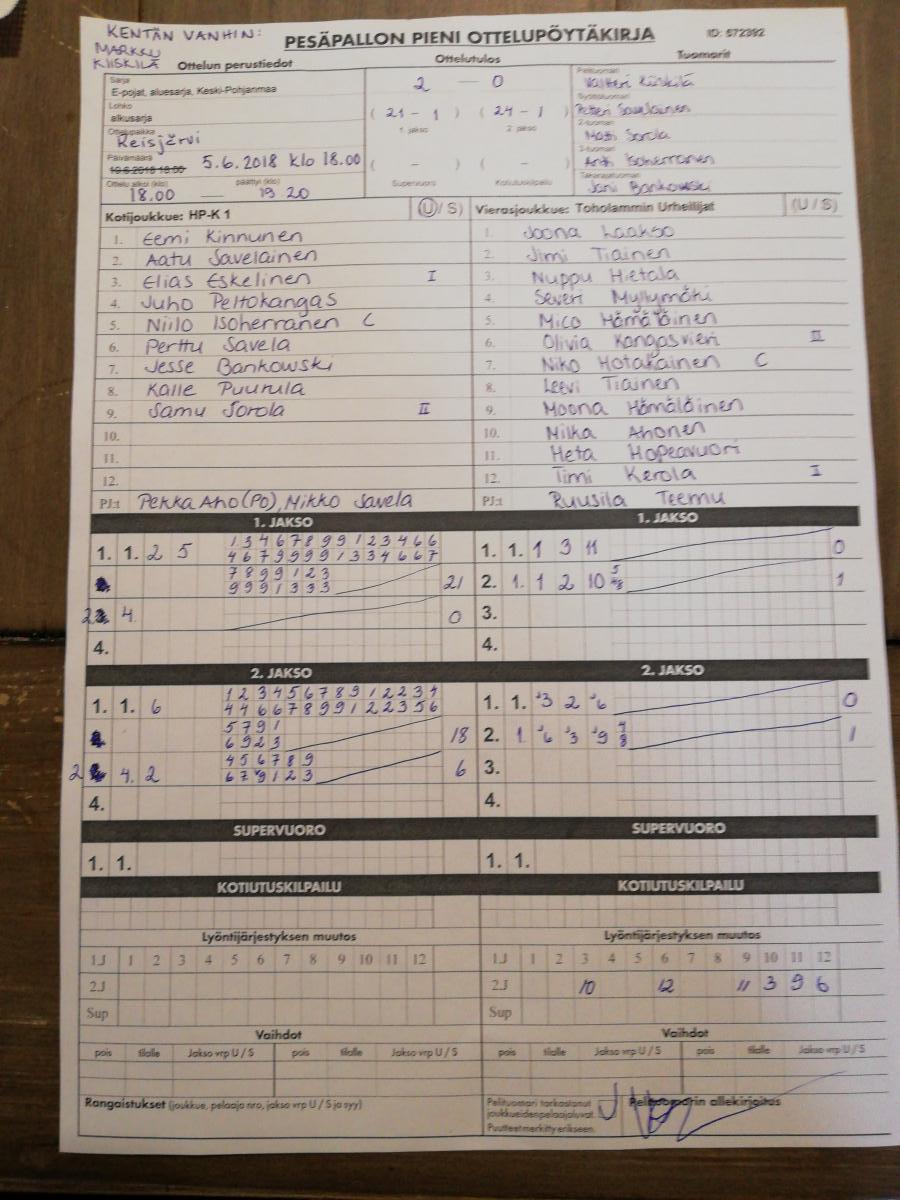 KENTÄN VANHIN:
MARKKU
KIISKILÄ
PESÄPALLON PIENI OTTELUPÖYTÄKIRJA
ID: 572392
Ottelun perustiedot
Ottelutulos
Tuomarit
Sarja
E-pojat, aluesarja, Keski-Pohjanmaa
2 — 0
Pelituomari
Valtteri Kiiskilä
Lohko
alkusarja
( 21 - 1 ) ( 24 - 1 )
1. jakso 2. jakso
Syöttötuomari
Petteri Savelainen
Ottelupaikka
Reisjärvi
2-tuomari
Matti Sorola
Päivämäärä
10.6.2018 18:00 5.6.2018 klo 18.00
( - ) ( - )
3-tuomari
Antti Isoherranen
Ottelu alkoi (klo) päättyi (klo)
18.00 — 19 20
Supervuoro Kotiutuskilpailu
Takarajatuomari
Jani Bankowski
Kotijoukkue: HP-K 1 (U / S)
Vierasjoukkue: Toholammin Urheilijat (U / S)
1. Eemi Kinnunen
1. Joona Laakso
2. Aatu Savelainen
2. Jimi Tiainen
3. Elias Eskelinen I
3. Nuppu Hietala
4. Juho Peltokangas
4. Severi Myllymäki
5. Niilo Isoherranen C
5. Mico Hämäläinen
6. Perttu Savela
6. Olivia Kangasvieri II
7. Jesse Bankowski
7. Niko Hotakainen C
8. Kalle Puurula
8. Leevi Tiainen
9. Samu Sorola II
9. Moona Hämäläinen
10.
10. Milka Ahonen
11.
11. Heta Hopeavuori
12.
12. Timi Kerola I
PJ:t Pekka Aho (PO), Mikko Savela
PJ:t Ruusila Teemu
1. JAKSO
1. JAKSO
1. 1. 2 5 1 3 4 6 7 8 9 9 1 2 3 4 6 6
4 6 7 9 9 9 9 1 3 3 4 6 6 7
1. 1. 1 3 11 0
7 8 9 9 1 2 3
9 9 9 1 3 3 3 21
2. 1. 1 2 10 1
2 4. 0
3.
4.
4.
2. JAKSO
2. JAKSO
1. 1. 6 1 2 3 4 5 6 7 8 9 1 2 2 3 4
4 4 6 6 7 8 9 9 1 2 2 3 5 6
1. 1. 3 2 6 0
5 7 9 1
6 9 2 3 18
2. 1. 6 3 9 1
2 4. 2 4 5 6 7 8 9
6 7 9 1 2 3 6
3.
4.
4.
SUPERVUORO
SUPERVUORO
1. 1.
1. 1.
KOTIUTUSKILPAILU
KOTIUTUSKILPAILU
Lyöntijärjestyksen muutos
Lyöntijärjestyksen muutos
1.J 1 2 3 4 5 6 7 8 9 10 11 12
1.J 1 2 3 4 5 6 7 8 9 10 11 12
2.J
2.J 10 12 11 3 9 6
Sup
Sup
Vaihdot
Vaihdot
pois tilalle Jakso vrp U / S pois tilalle Jakso vrp U / S
pois tilalle Jakso vrp U / S pois tilalle Jakso vrp U / S
Rangaistukset (joukkue, pelaaja nro, jakso vrp U / S ja syy)
Pelituomari tarkastanut
joukkueiden pelaajaluvat.
Puutteet merkitty erikseen.
Pelituomarin allekirjoitus